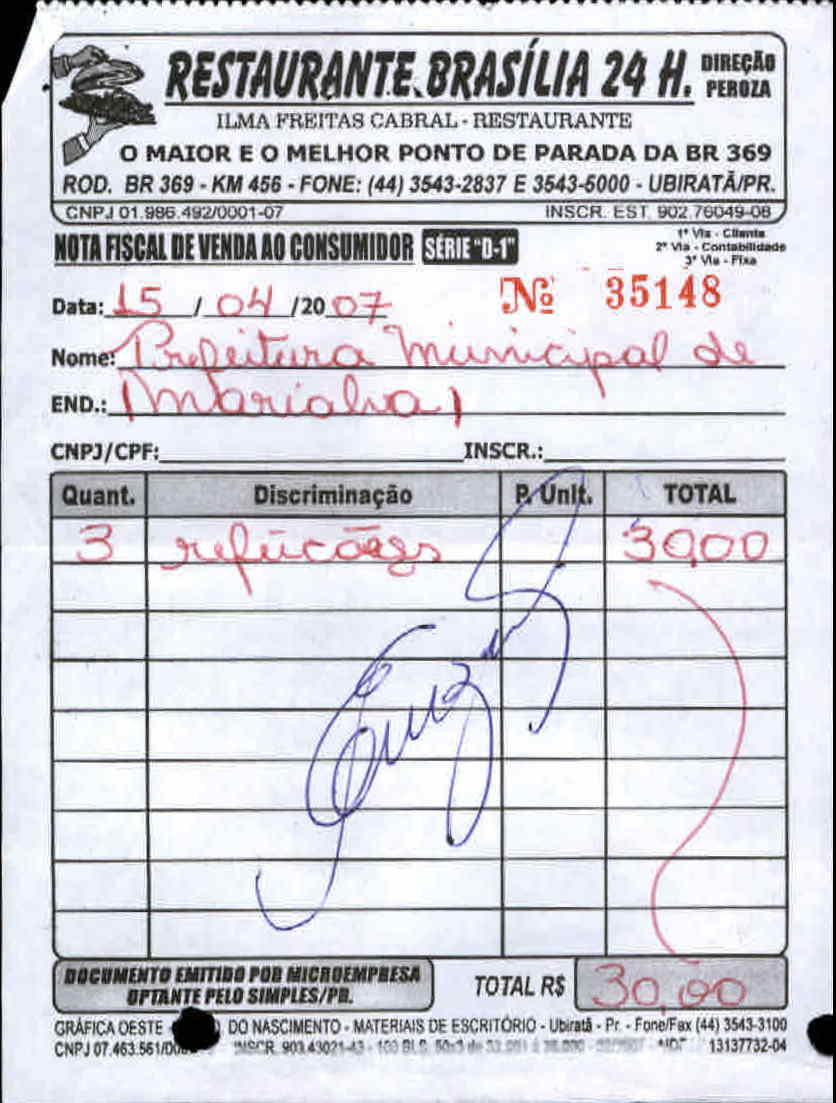 RESTAURANTE BRASÍLIA 24 H. DIREÇÃO PEROZA
ILMA FREITAS CABRAL - RESTAURANTE
O MAIOR E O MELHOR PONTO DE PARADA DA BR 369
ROD. BR 369 - KM 456 - FONE: (44) 3543-2837 E 3543-5000 - UBIRATÃ/PR.
CNPJ 01.986.492/0001-07 INSCR. EST. 902.76049-08
NOTA FISCAL DE VENDA AO CONSUMIDOR SÉRIE "D-1"
1ª Via - Cliente
2ª Via - Contabilidade
3ª Via - Fixa
Data: 15 / 04 /2007 Nº 35148
Nome: Prefeitura Municipal de
END.: Marialva
CNPJ/CPF: INSCR.:
Quant. Discriminação P. Unit. TOTAL
3 refeições 30,00
DOCUMENTO EMITIDO POR MICROEMPRESA
OPTANTE PELO SIMPLES/PR.
TOTAL R$ 30,00
GRÁFICA OESTE - DO NASCIMENTO - MATERIAIS DE ESCRITÓRIO - Ubiratã - Pr. - Fone/Fax (44) 3543-3100
CNPJ 07.463.561/ INSCR. 903.43021-43 - 100 BLS. 50x3 13137732-04